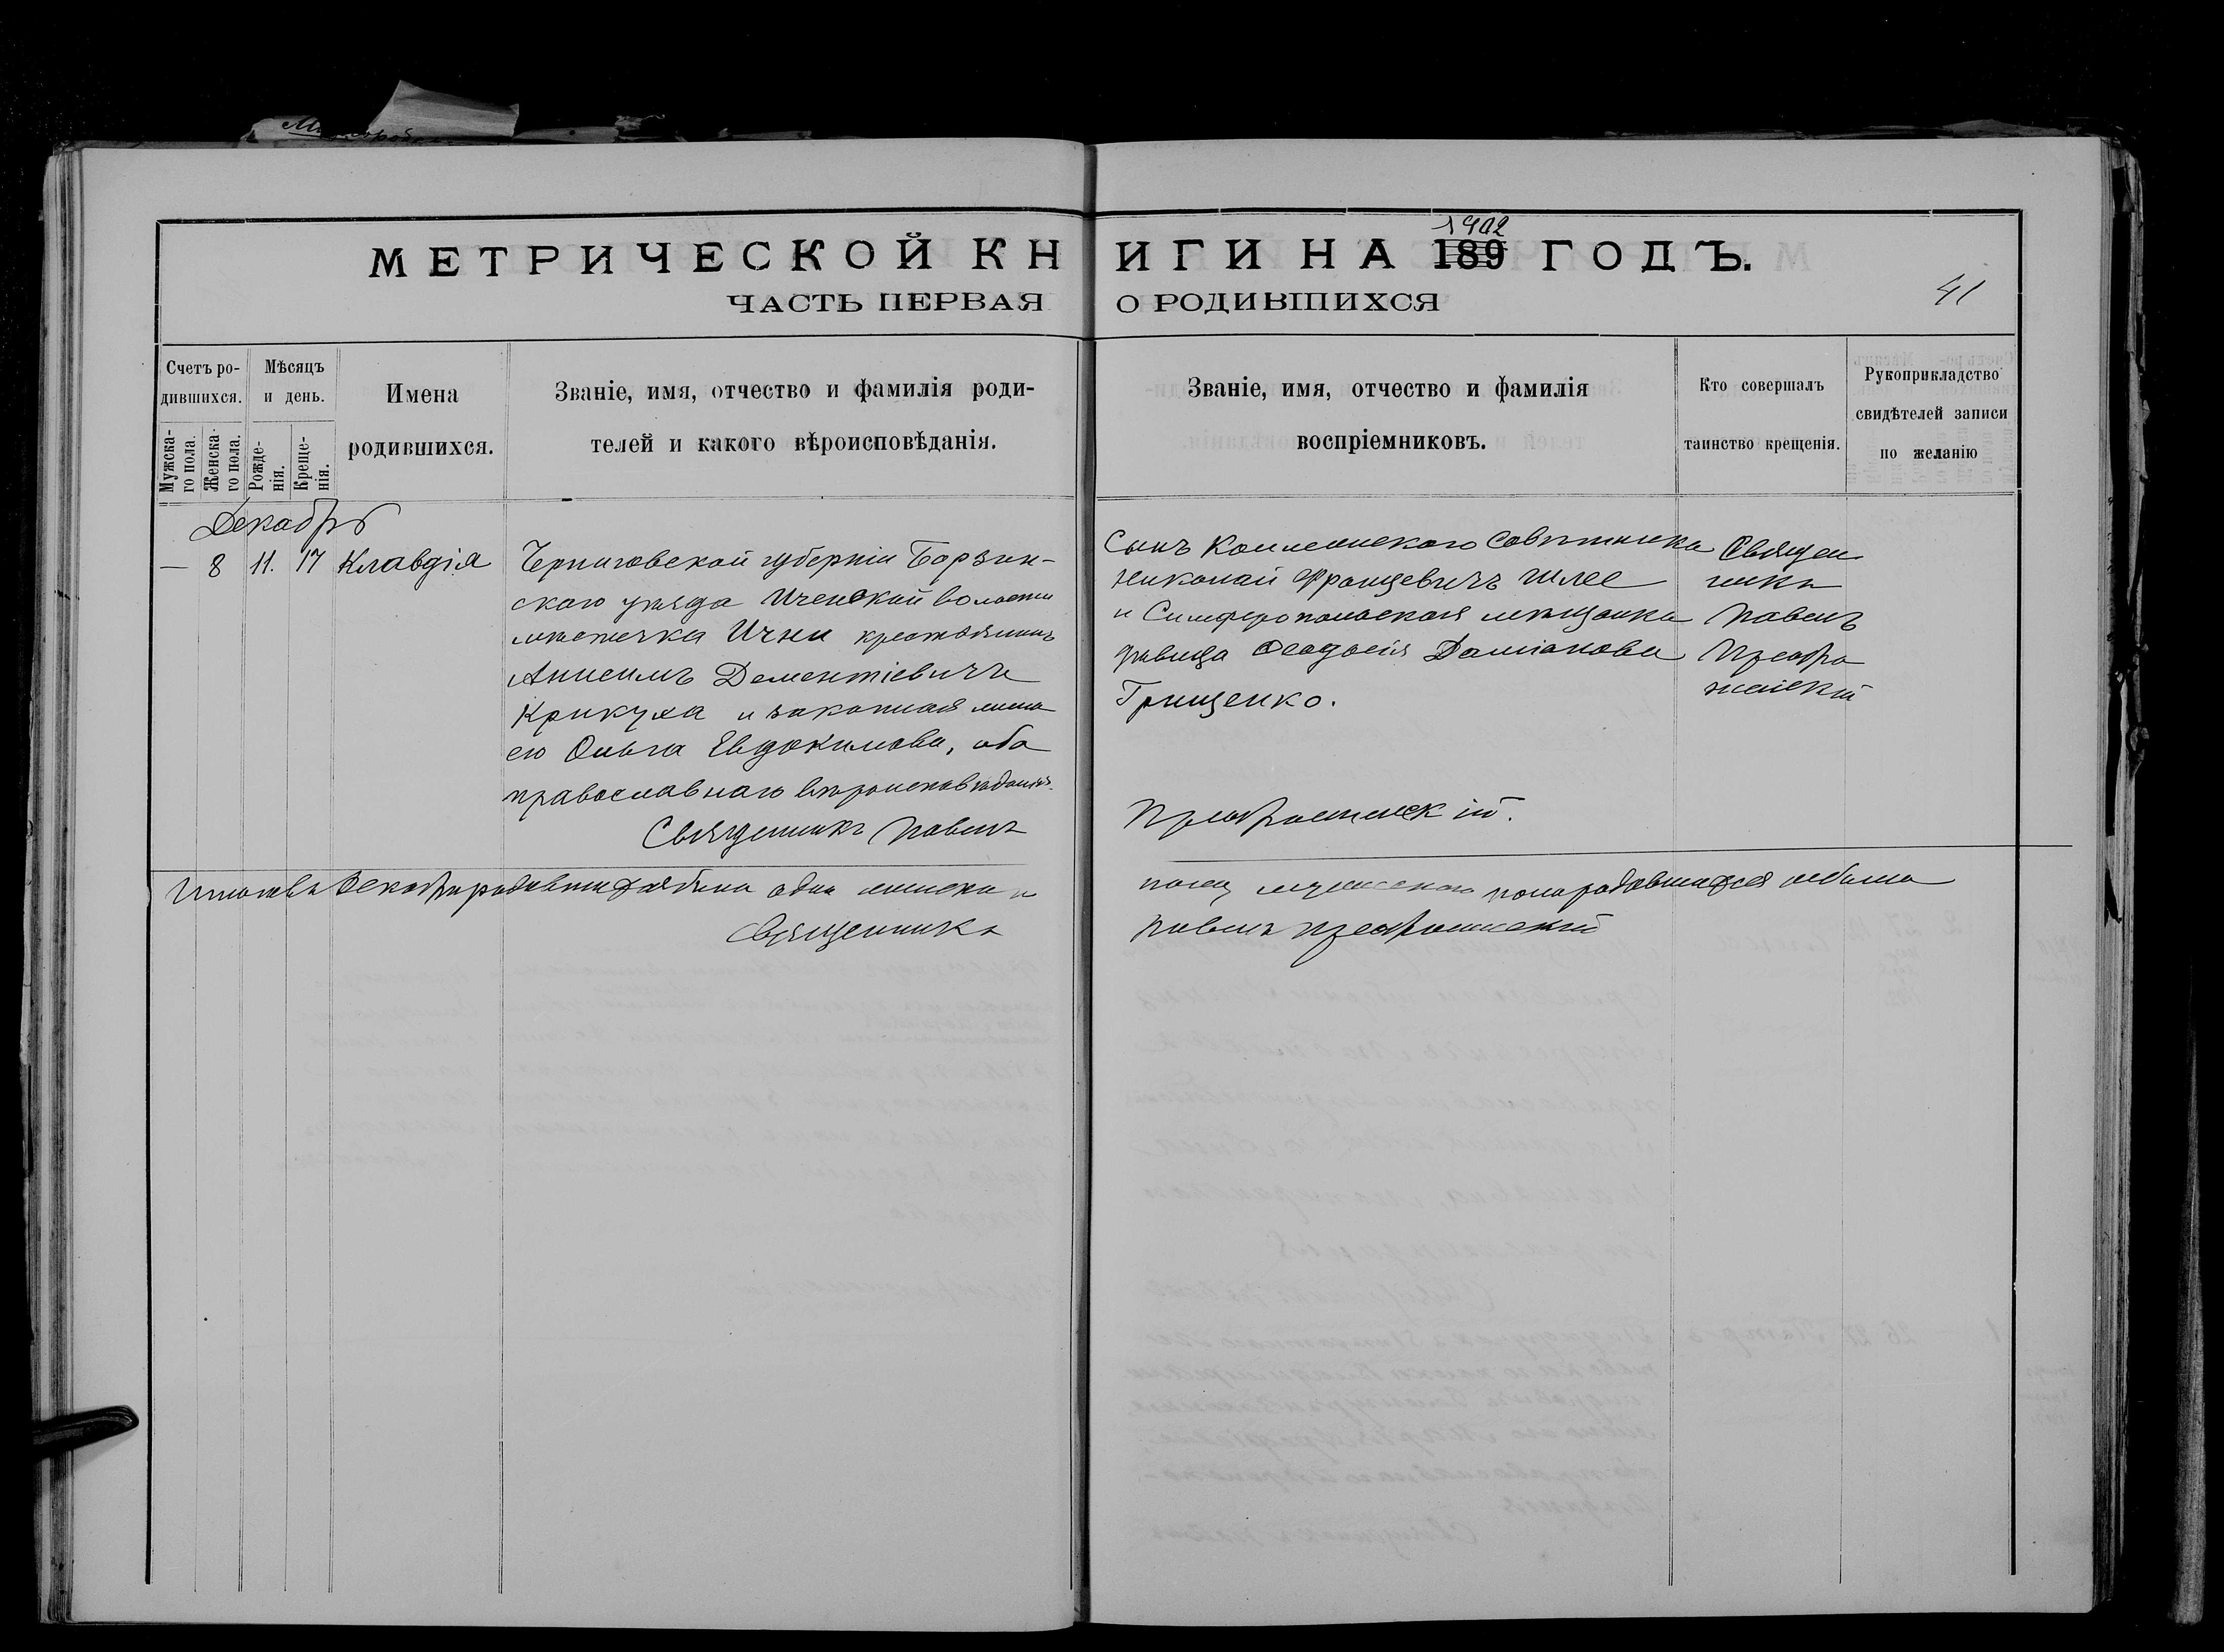 МЕТРИЧЕСКОЙ КНИГИ НА 1902 189 ГОДЪ.
ЧАСТЬ ПЕРВАЯ О РОДИВШИХСЯ
41
Счетъ родившихся.
Мужскаго пола.
Женскаго пола.
Мѣсяцъ и день.
Рожденія.
Крещенія.
Имена родившихся.
Званіе, имя, отчество и фамилія роди-
телей и какого вѣроисповѣданія.
Званіе, имя, отчество и фамилія
воспріемниковъ.
Кто совершалъ
таинство крещенія.
Рукоприкладство
свидѣтелей записи
по желанію
Декабрь
— 8 11. 17 Клавдія
Черниговской губерніи Борзин-
скаго уѣзда Иченской волости
мѣстечка Ични крестьянинъ
Анисимъ Дементіевичъ
Крикуха и законная жена
его Ольга Евдокимова, оба
православнаго вѣроисповѣданія.
Священникъ Павелъ
Сынъ Коллежскаго Совѣтника
Николай Францевичъ Шлее
и Симферопольская мѣщанка
дѣвица Ѳеодосія Даміанова
Грищенко.
Преображенскій.
Священ
никъ
Павелъ
Преобра
женскій
Итого въ Декабрѣ родившихся была одна женска
пола мужескаго пола родившихся не было
Священникъ
Павелъ Преображенскій